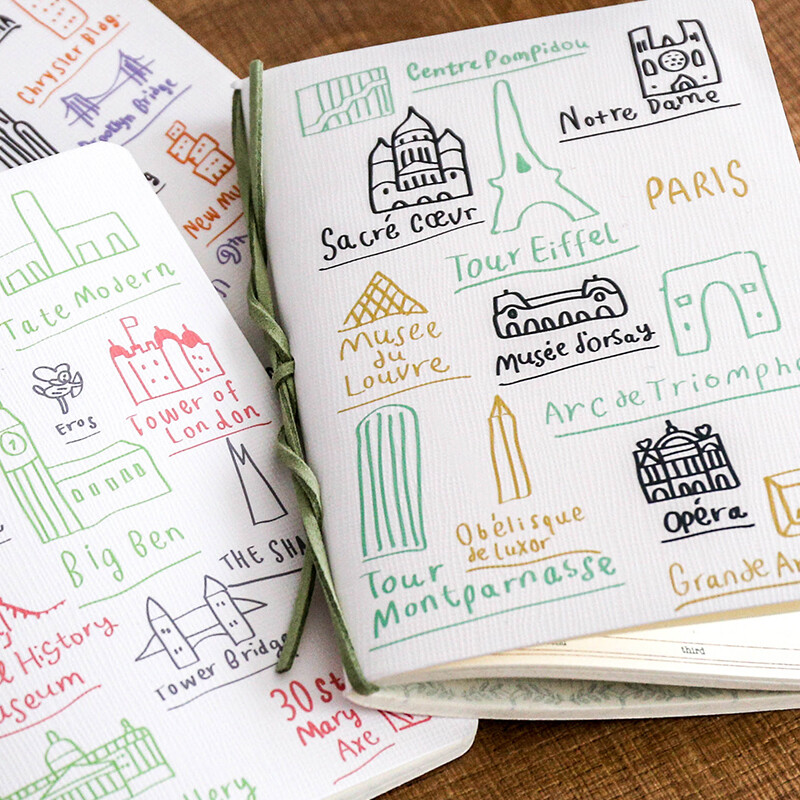 Chrysler Bldg.
Brooklyn Bridge
New
Tate Modern
Eros
Tower of
London
Big Ben
THE
History
Tower Bridge
30 St
Mary
Axe
Centre Pompidou
Notre Dame
Sacré Cœur
PARIS
Tour Eiffel
Musée
du
Louvre
Musée d'orsay
Arc de Triomphe
Obélisque
de Luxor
Opéra
Tour
Montparnasse
Grande
third